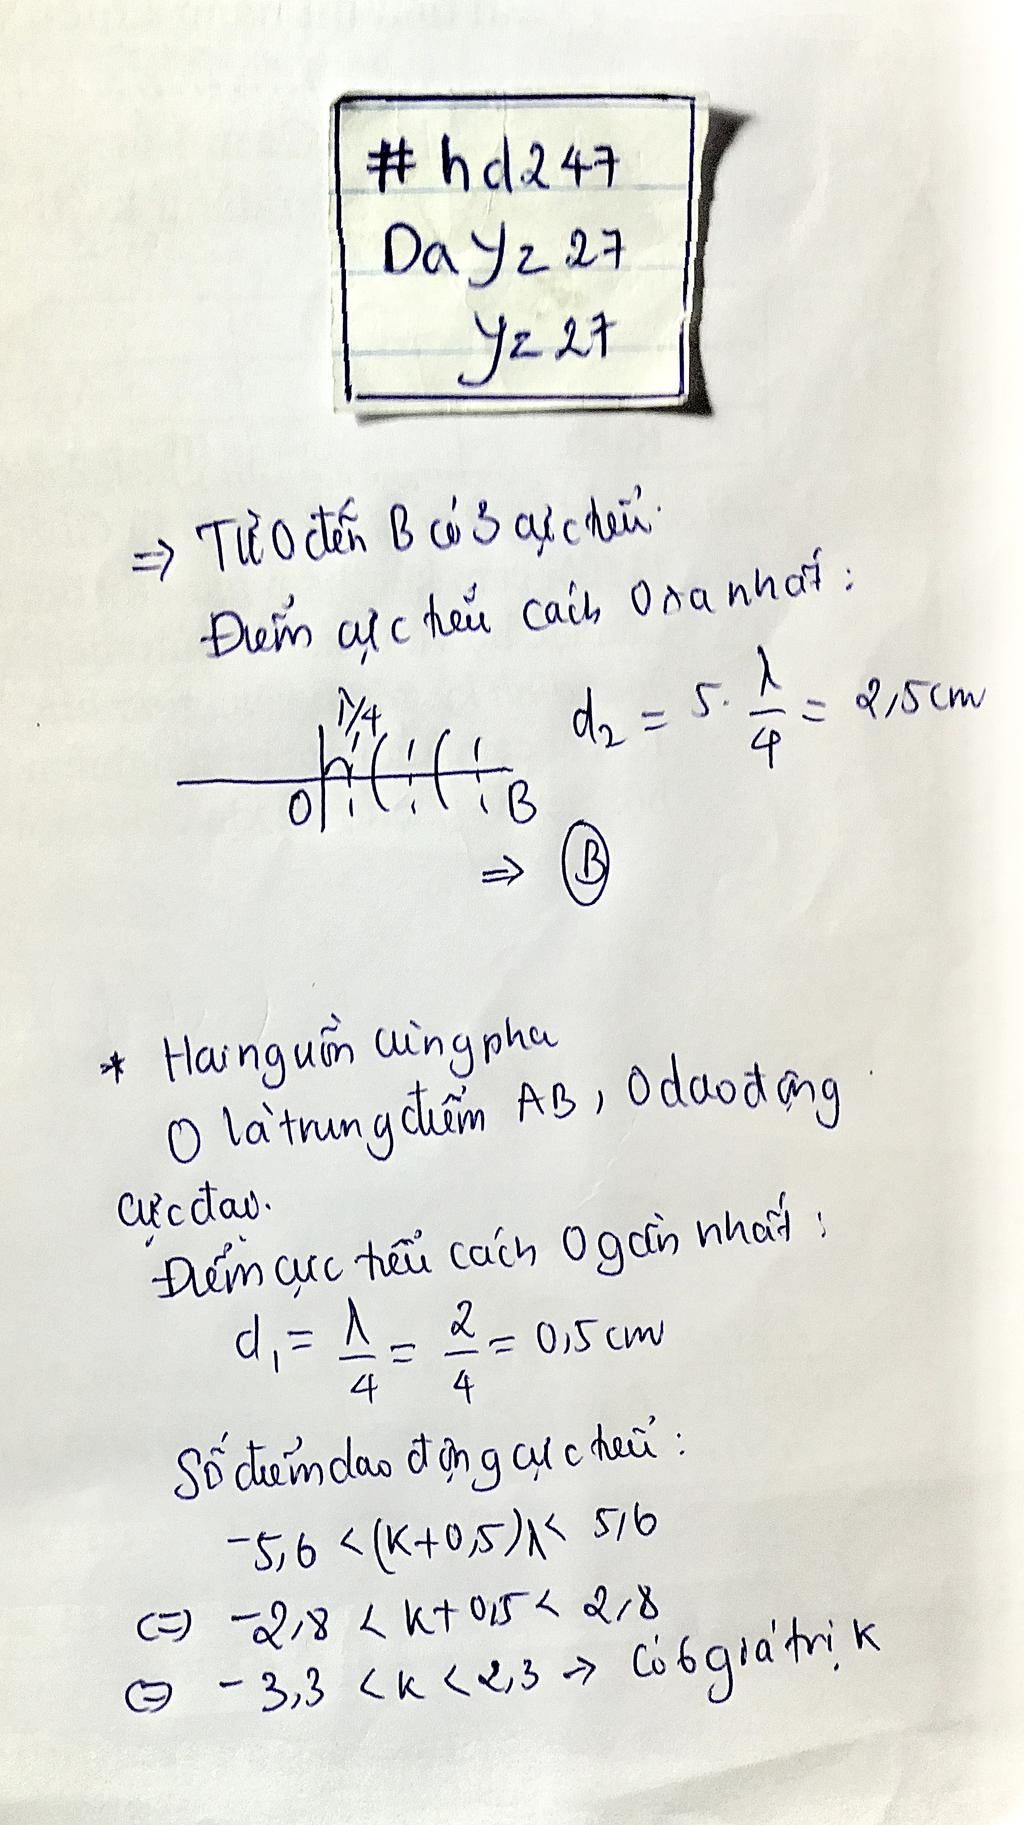 #hd247
Dayz27
yz27
⇒ Từ O đến B có 3 cực tiểu.
Điểm cực tiểu cách O xa nhất:
d₂ = 5. λ/4 = 2,5cm
λ/4
O B
⇒ B
* Hai nguồn cùng pha
O là trung điểm AB, O dao động
cực đại.
Điểm cực tiểu cách O gần nhất:
d₁ = λ/4 = 2/4 = 0,5cm
Số điểm dao động cực tiểu:
-5,6 < (k+0,5)λ < 5,6
⇔ -2,8 < k+0,5 < 2,8
⇔ -3,3 < k < 2,3 → Có 6 giá trị k